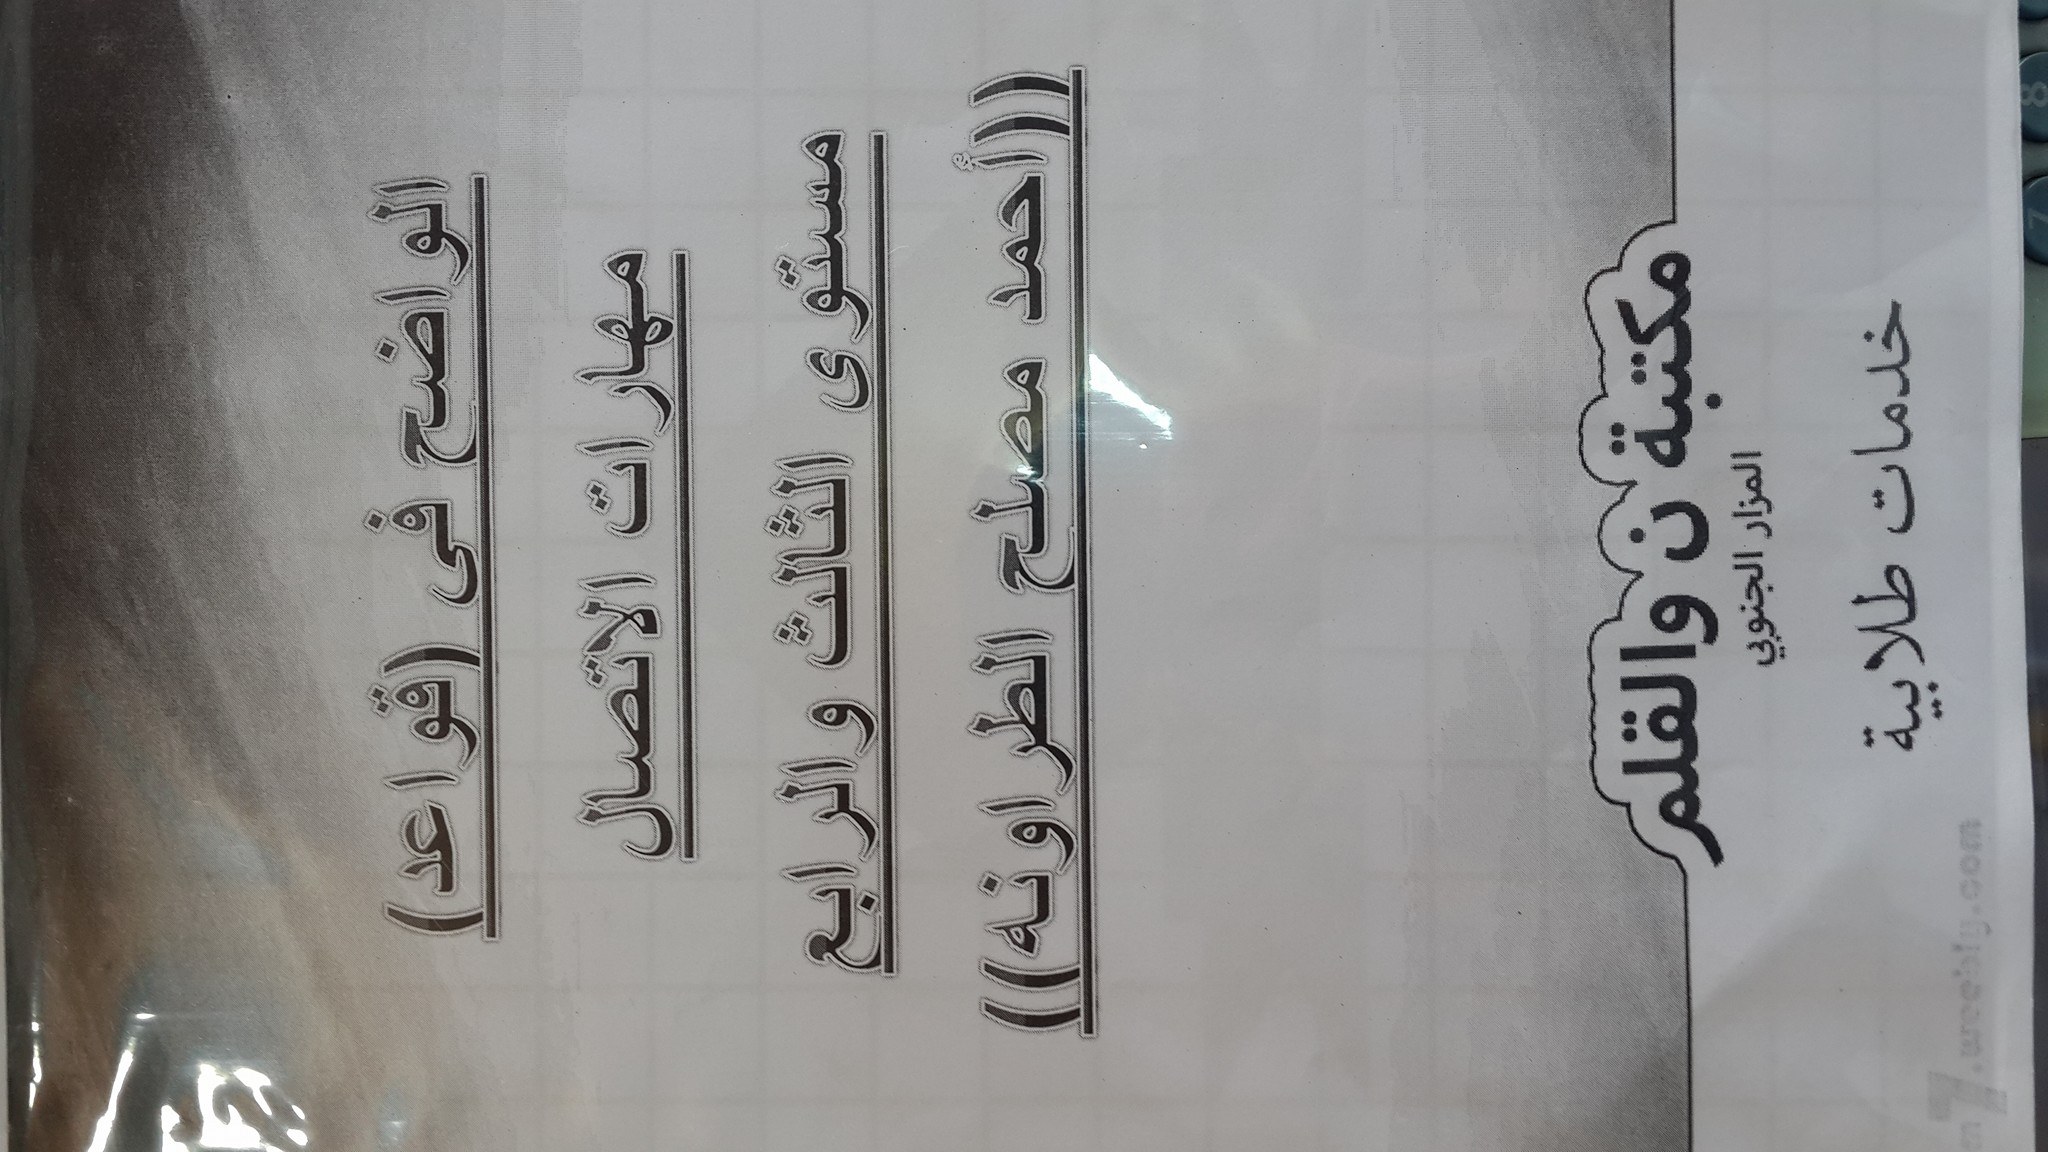 الواضح في (قواعد)
مهارات الاتصال
مستوى الثالث والرابع
((أحمد مصلح الطراونه))
مكتبة ن والقلم
المزار الجنوبي
خدمات طلابية
7.weebly.com
7
8